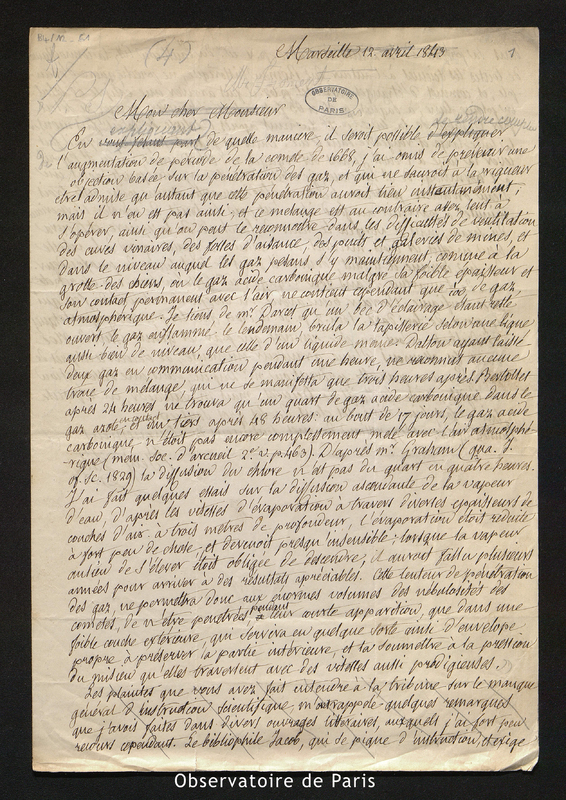 (4)
1
Marseille 12 avril 1843
OBSERVATOIRE
DE
PARIS
Mon cher Monsieur
expliquant
En de quelle manière il seroit possible d'expliquer
l'augmentation de période de la comète de 1668, j'ai omis de prévenir une
objection basée sur la pénétration des gaz, et qui ne sauroit à la rigueur
être admise qu'autant que cette pénétration auroit lieu instantanément;
mais il n'en est pas ainsi, et ce mélange est au contraire assez lent à
s'opérer, ainsi qu'on peut le reconnoitre dans les difficultés de ventilation
des cuves vinaires, des fosses d'aisance, des puits et galeries de mines, et
dans le niveau auquel les gaz pesans s'y maintiennent, comme à la
grotte des chiens, ou le gaz acide carbonique malgré sa foible épaisseur et
son contact permanent avec l'air ne contient cependant que de gaz
atmosphérique. Je tiens de mr. Darcet qu'un bec d'éclairage étant resté
ouvert, le gaz enflammé le lendemain, brula la tapisserie selon une ligne
aussi bien de niveau, que celle d'un liquide même. Dalton ayant laissé
deux gaz en communication pendant une heure, ne reconnut aucune
trace de mélange, qui ne se manifesta que trois heures après. Berthollet
après 24 heures ne trouva qu'un quart de gaz acide carbonique dans le
gaz azote, et un tiers après 48 heures: au bout de 17 jours, le gaz acide
carbonique, n'étoit pas encore complettement mêlé avec l'air atmosphé-
-rique (mem. Soc. d'arcueil 2e. v. p. 463). D'après mr. Graham (qua. J.
of. Sc. 1829) la diffusion du chlore n'est pas du quart en quatre heures.
J'ai fait quelques essais sur la diffusion ascendante de la vapeur
d'eau, d'après les vitesses d'évaporation à travers diverses épaisseurs de
couches d'air. à trois mètres de profondeur, l'évaporation étoit réduite
à fort peu de chose, et devenoit presqu'insensible; lorsque la vapeur
aulieu de s'élever étoit obligée de descendre, il auroit fallu plusieurs
années pour arriver à des résultats appréciables. Cette lenteur de pénétration
des gaz, ne permettra donc aux énormes volumes des nébulosités des
comètes, de n'être pénétrées pendant leur courte apparition, que dans une
foible couche extérieure, qui servira en quelque sorte ainsi d'enveloppe
propre à préserver la partie intérieure, et la soumettre à la pression
du milieu qu'elles traversent avec des vitesses aussi prodigieuses.
Les plaintes que vous avez fait entendre à la tribune sur le manque
général d'instruction scientifique, m'ont rappelé quelques remarques
que j'avois faites dans divers ouvrages littéraires, auxquels j'ai fort peu
recours cependant. Le bibliophile Jacob, qui se pique d'instruction, et exige
Observatoire de Paris